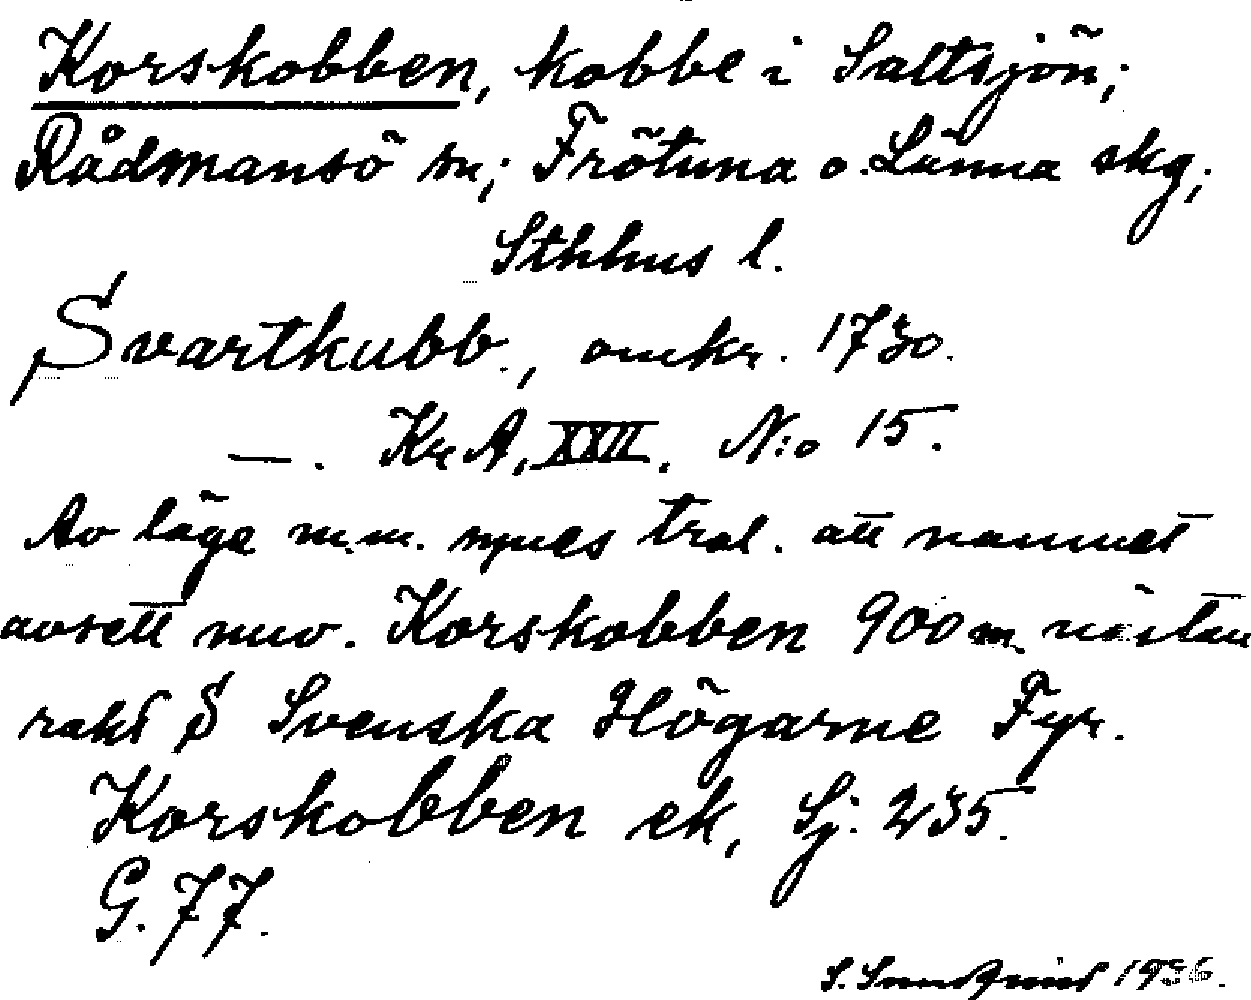 Korskobben, kobbe i Saltsjön;
Rådmansö sn; Frötuna o. Länna skg;
Sthlms l.
Svartkubb., omkr. 1730.
—. Kr A, XXII, N:o 15.
Av läge m.m. synes trol. att namnet
avsett nuv. Korskobben 900 m. nästan
rakt S Svenska Högarne Fyr.
Korskobben ek, Sj. 235.
G. 77.
S. 1936.